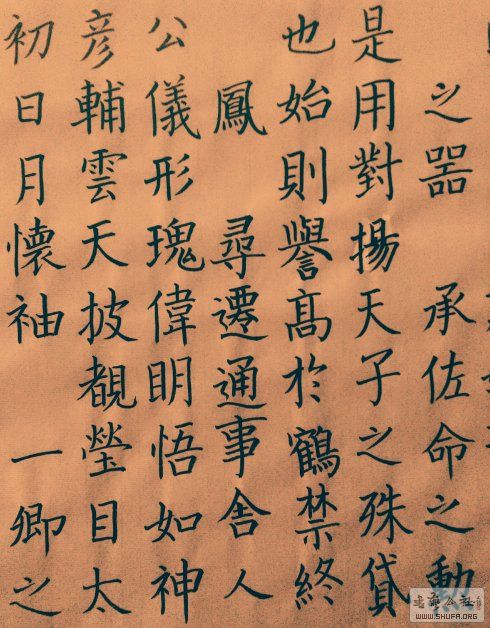 之器 承佐命之
是用對揚天子之殊貸
也始則譽髙於鶴禁終
鳳 尋遷通事舍人
公儀形瑰偉眀悟如神
彦輔雲天披覩瑩目太
初日月懷袖 一卿之
书法公社
WWW.SHUFA.ORG